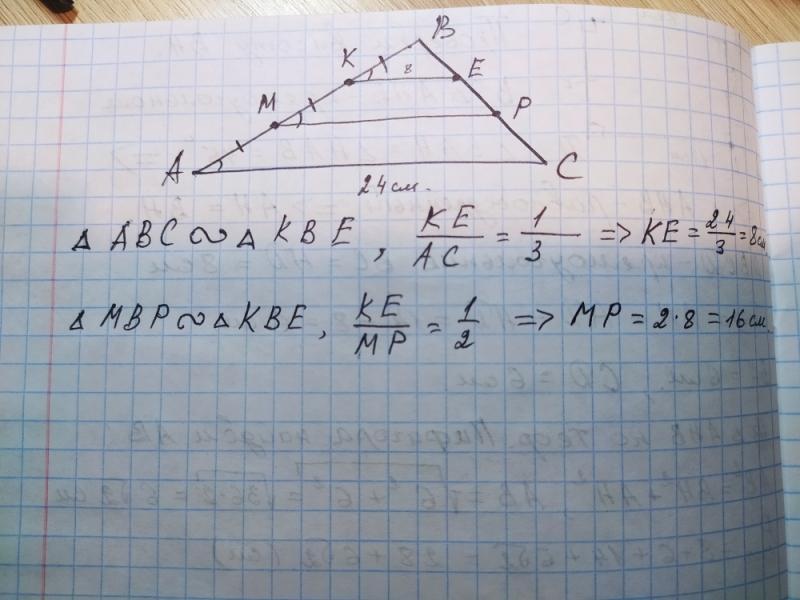 B
K 8 E
M P
A C
24 см.
△ ABC ∾ △ KBE, KE/AC = 1/3 => KE = 24/3 = 8 см
△ MBP ∾ △ KBE, KE/MP = 1/2 => MP = 2·8 = 16 см.